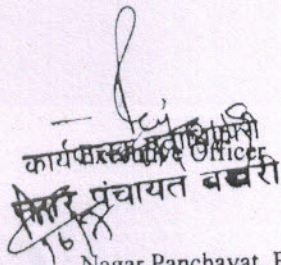 कार्यपालक पदाधिकारी
Executive Officer
नगर पंचायत बखरी
Nagar Panchayat,